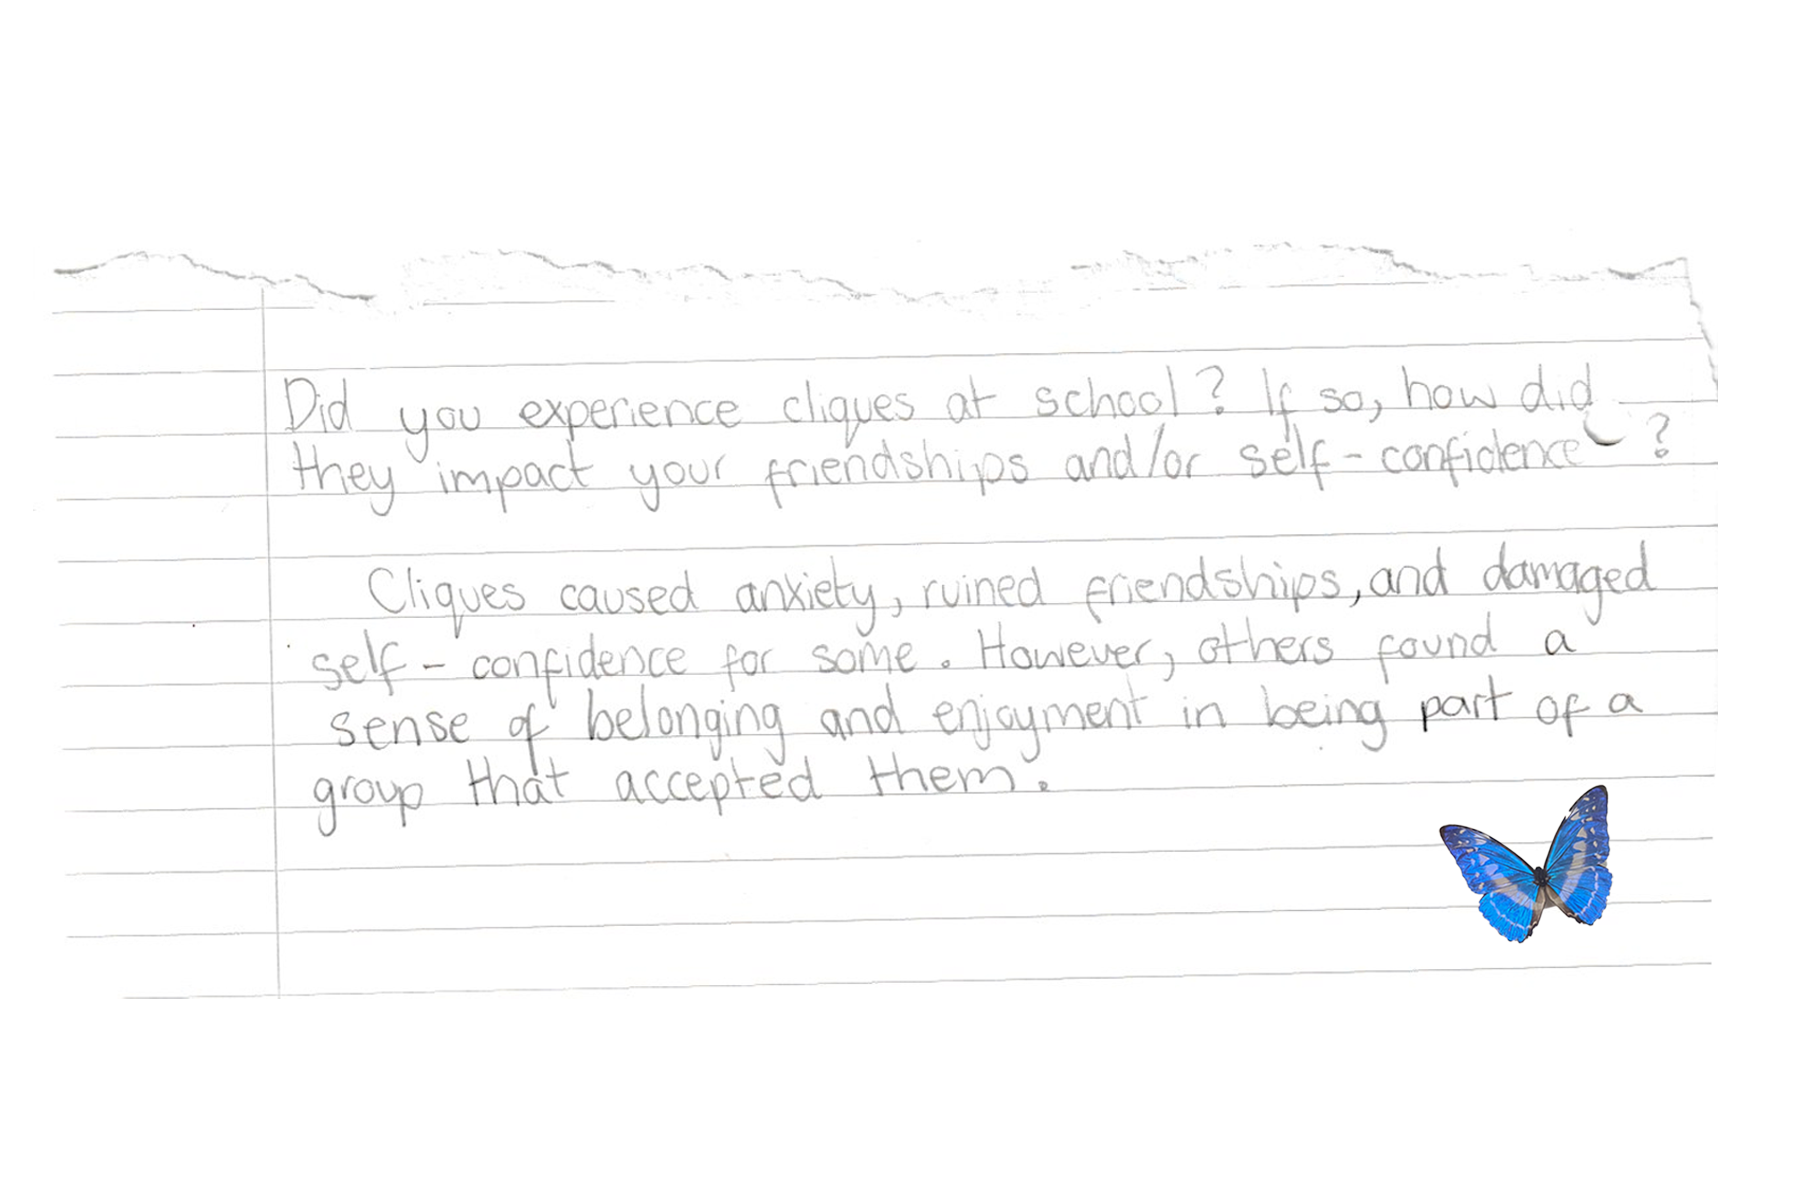 Did you experience cliques at school? If so, how did
they impact your friendships and/or self-confidence ?
Cliques caused anxiety, ruined friendships, and damaged
self-confidence for some. However, others found a
sense of belonging and enjoyment in being part of a
group that accepted them.